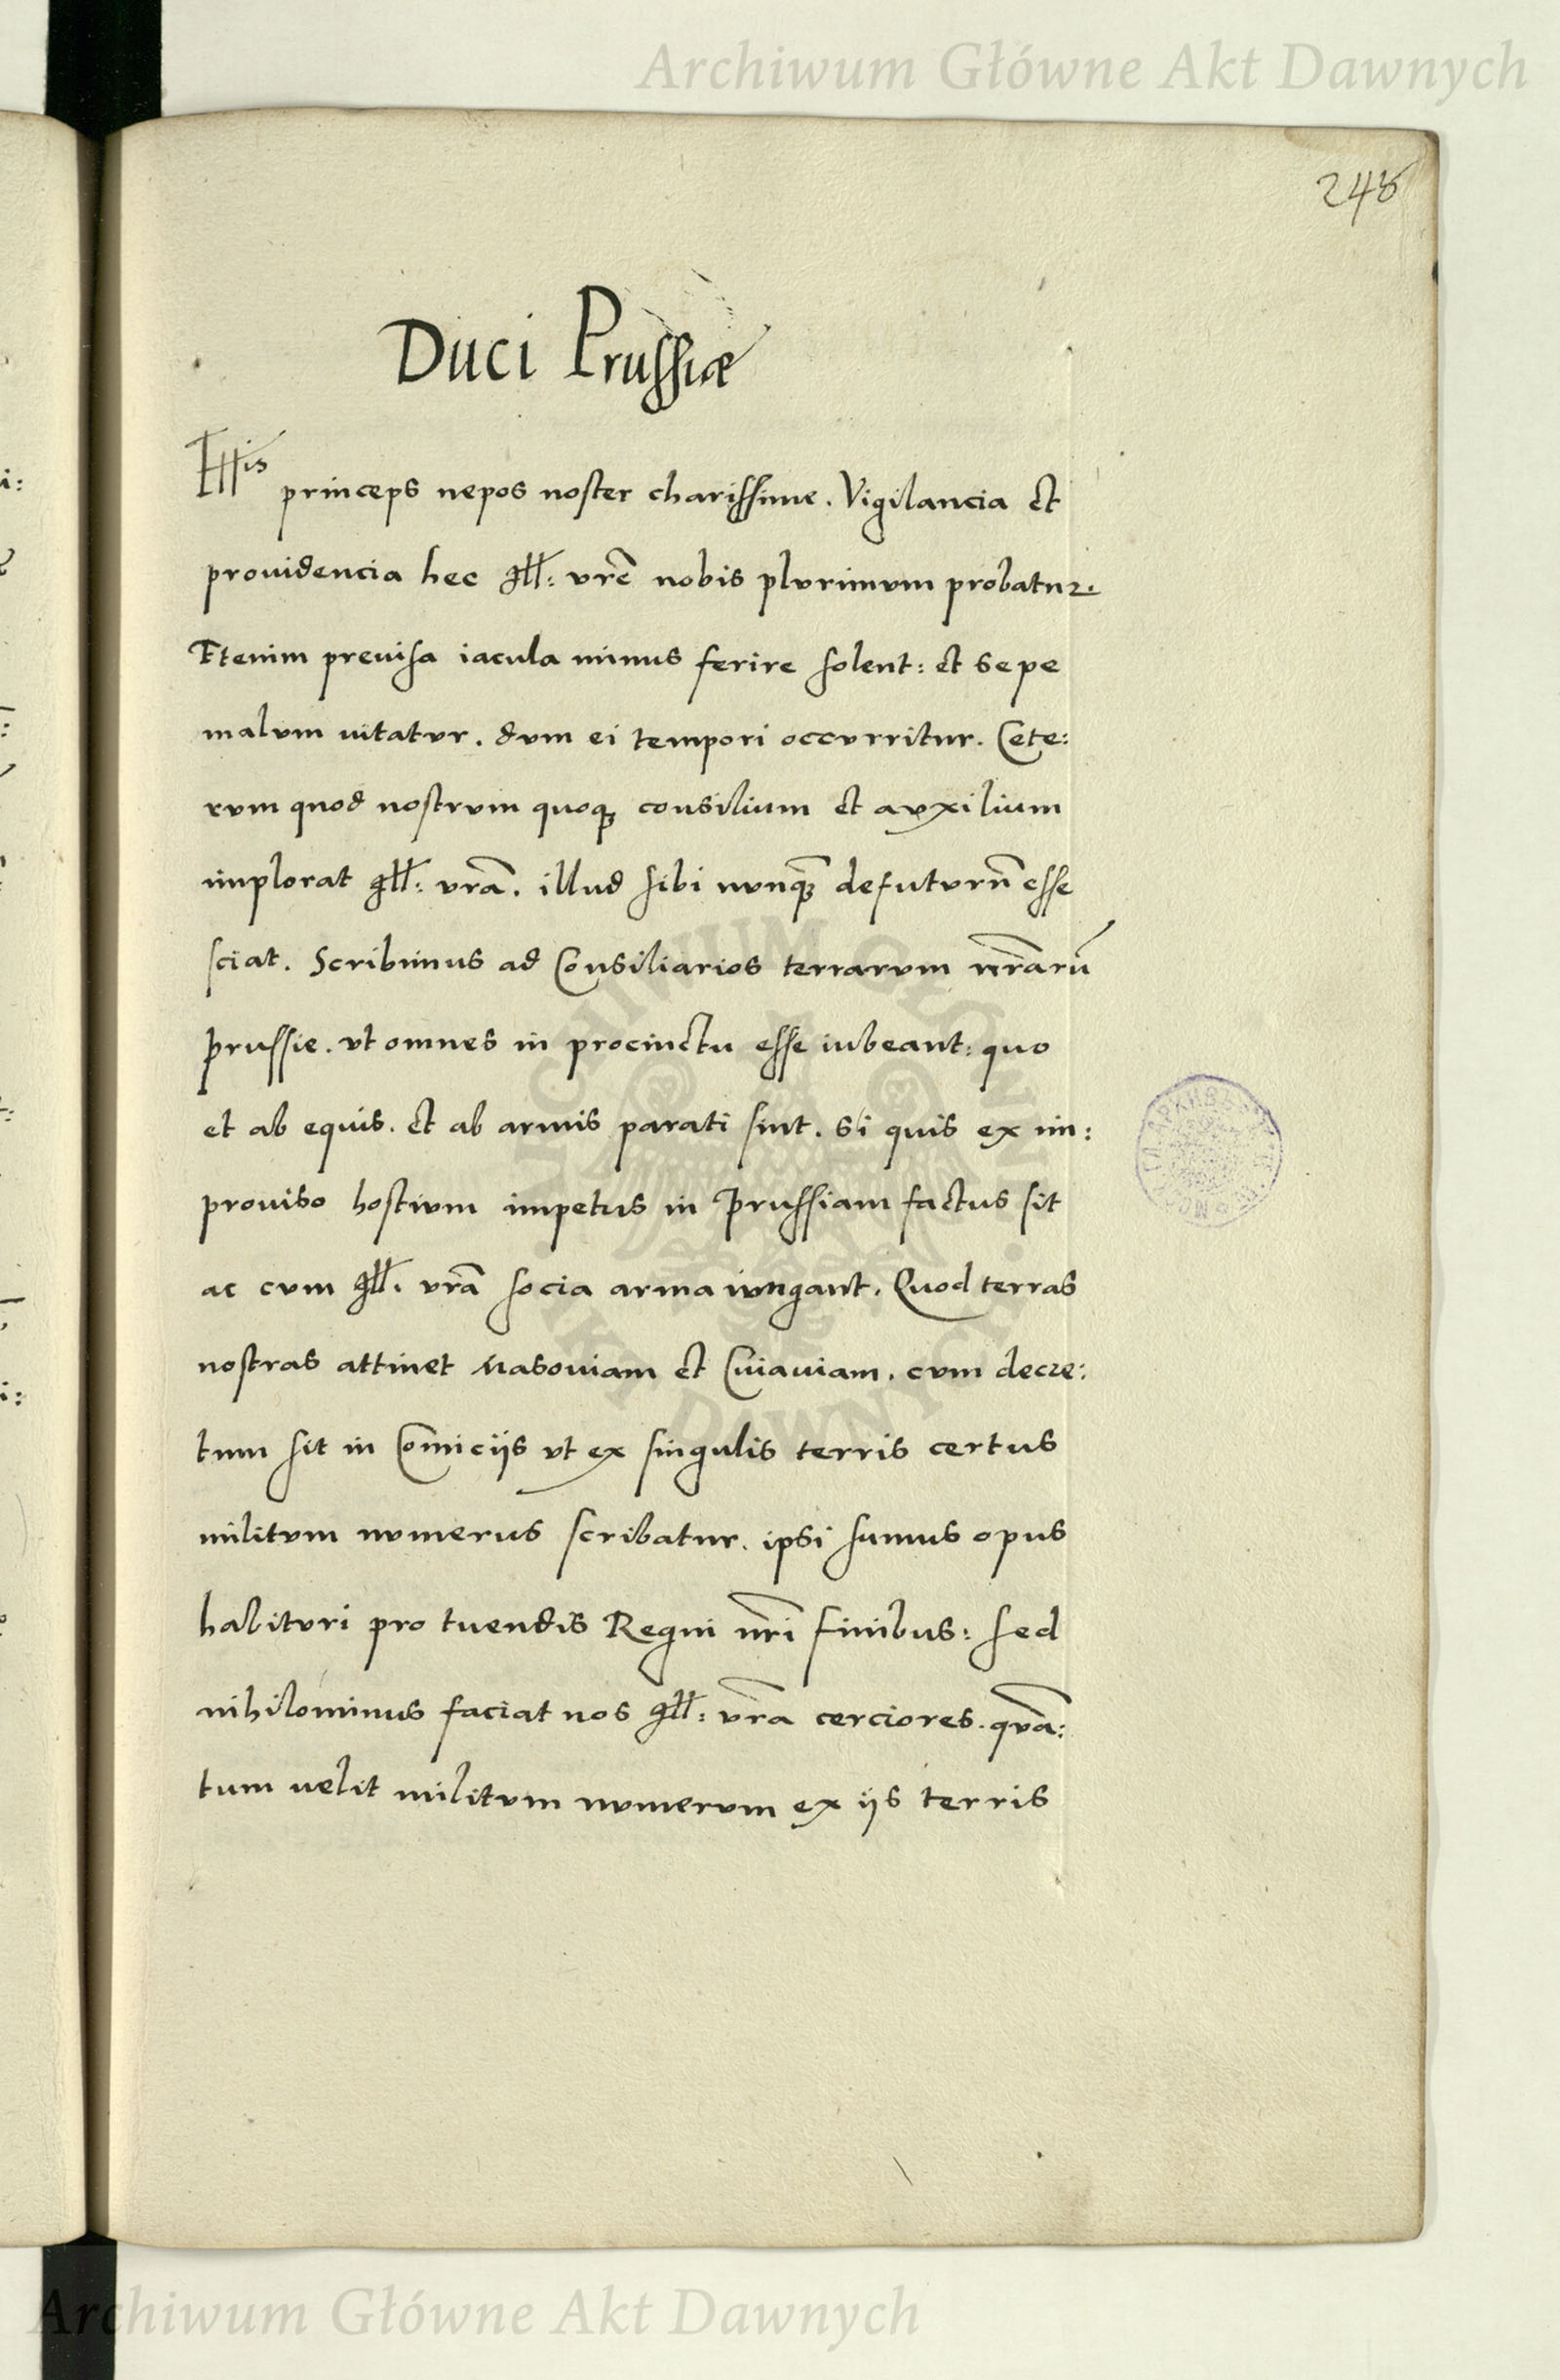 Archiwum Główne Akt Dawnych
248
Duci Prussiæ
princeps nepos noster charissime. Vigilancia et
prouidencia hec Ill: vr̃e nobis plvrimvm probatur.
Etenim preuisa iacula minus ferire solent: et sepe
malvm uitatvr. dvm ei tempori occvrritur. Cete:
rvm quod nostrvm quoq; consilium et avxilium
implorat Ill: vr̃a. illud sibi nvnq̃ defutvrũ esse
sciat. Scribimus ad Consiliarios terrarvm nr̃arũ
Prussie. vt omnes in procinctu esse iubeant: quo
et ab equis. et ab armis parati sint. si quis ex im:
prouiso hostivm impetus in Prussiam factus sit
ac cvm Ill. vr̃a socia arma ivngant. Quod terras
nostras attinet Masouiam et Cuiauiam. cvm decre:
tum sit in Comiciis vt ex singulis terris certus
militvm nvmerus scribatur. ipsi sumus opus
habitvri pro tvendis Regni nr̃i finibus: sed
nihilominus faciat nos Ill: vr̃a cerciores. qvã:
tum uelit militvm nvmervm ex iis terris
Archiwum Główne Akt Dawnych